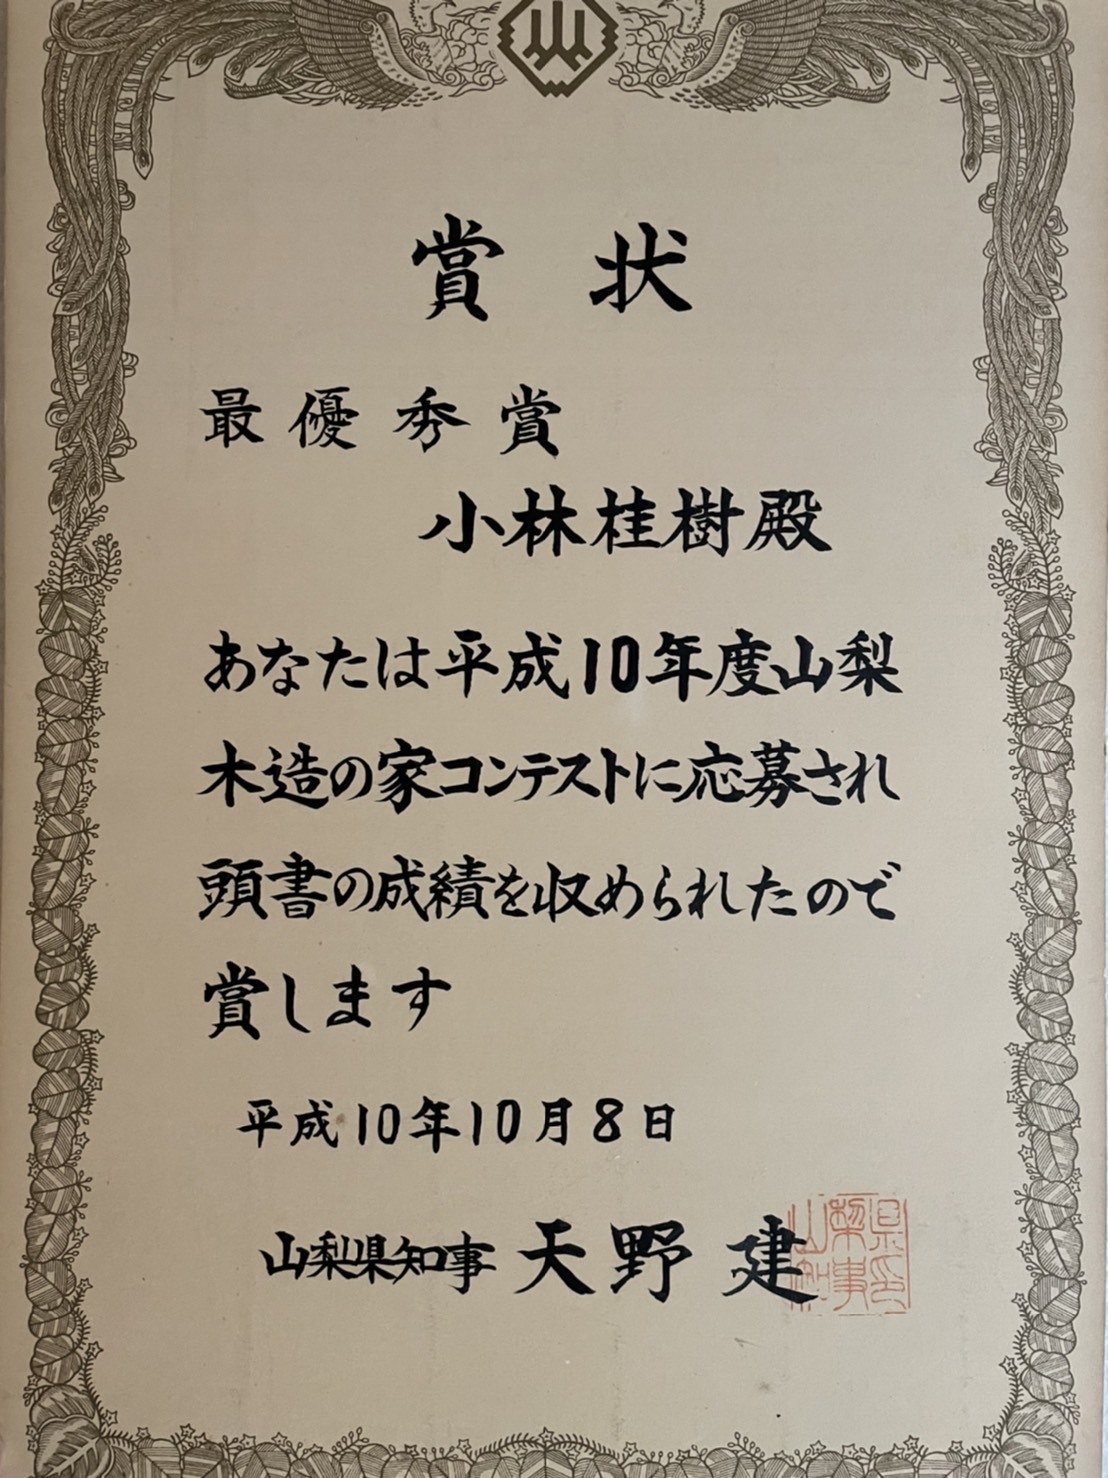 賞状
最優秀賞
小林桂樹殿
あなたは平成10年度山梨
木造の家コンテストに応募され
頭書の成績を収められたので
賞します
平成10年10月8日
山梨県知事 天野建
山梨県知事印